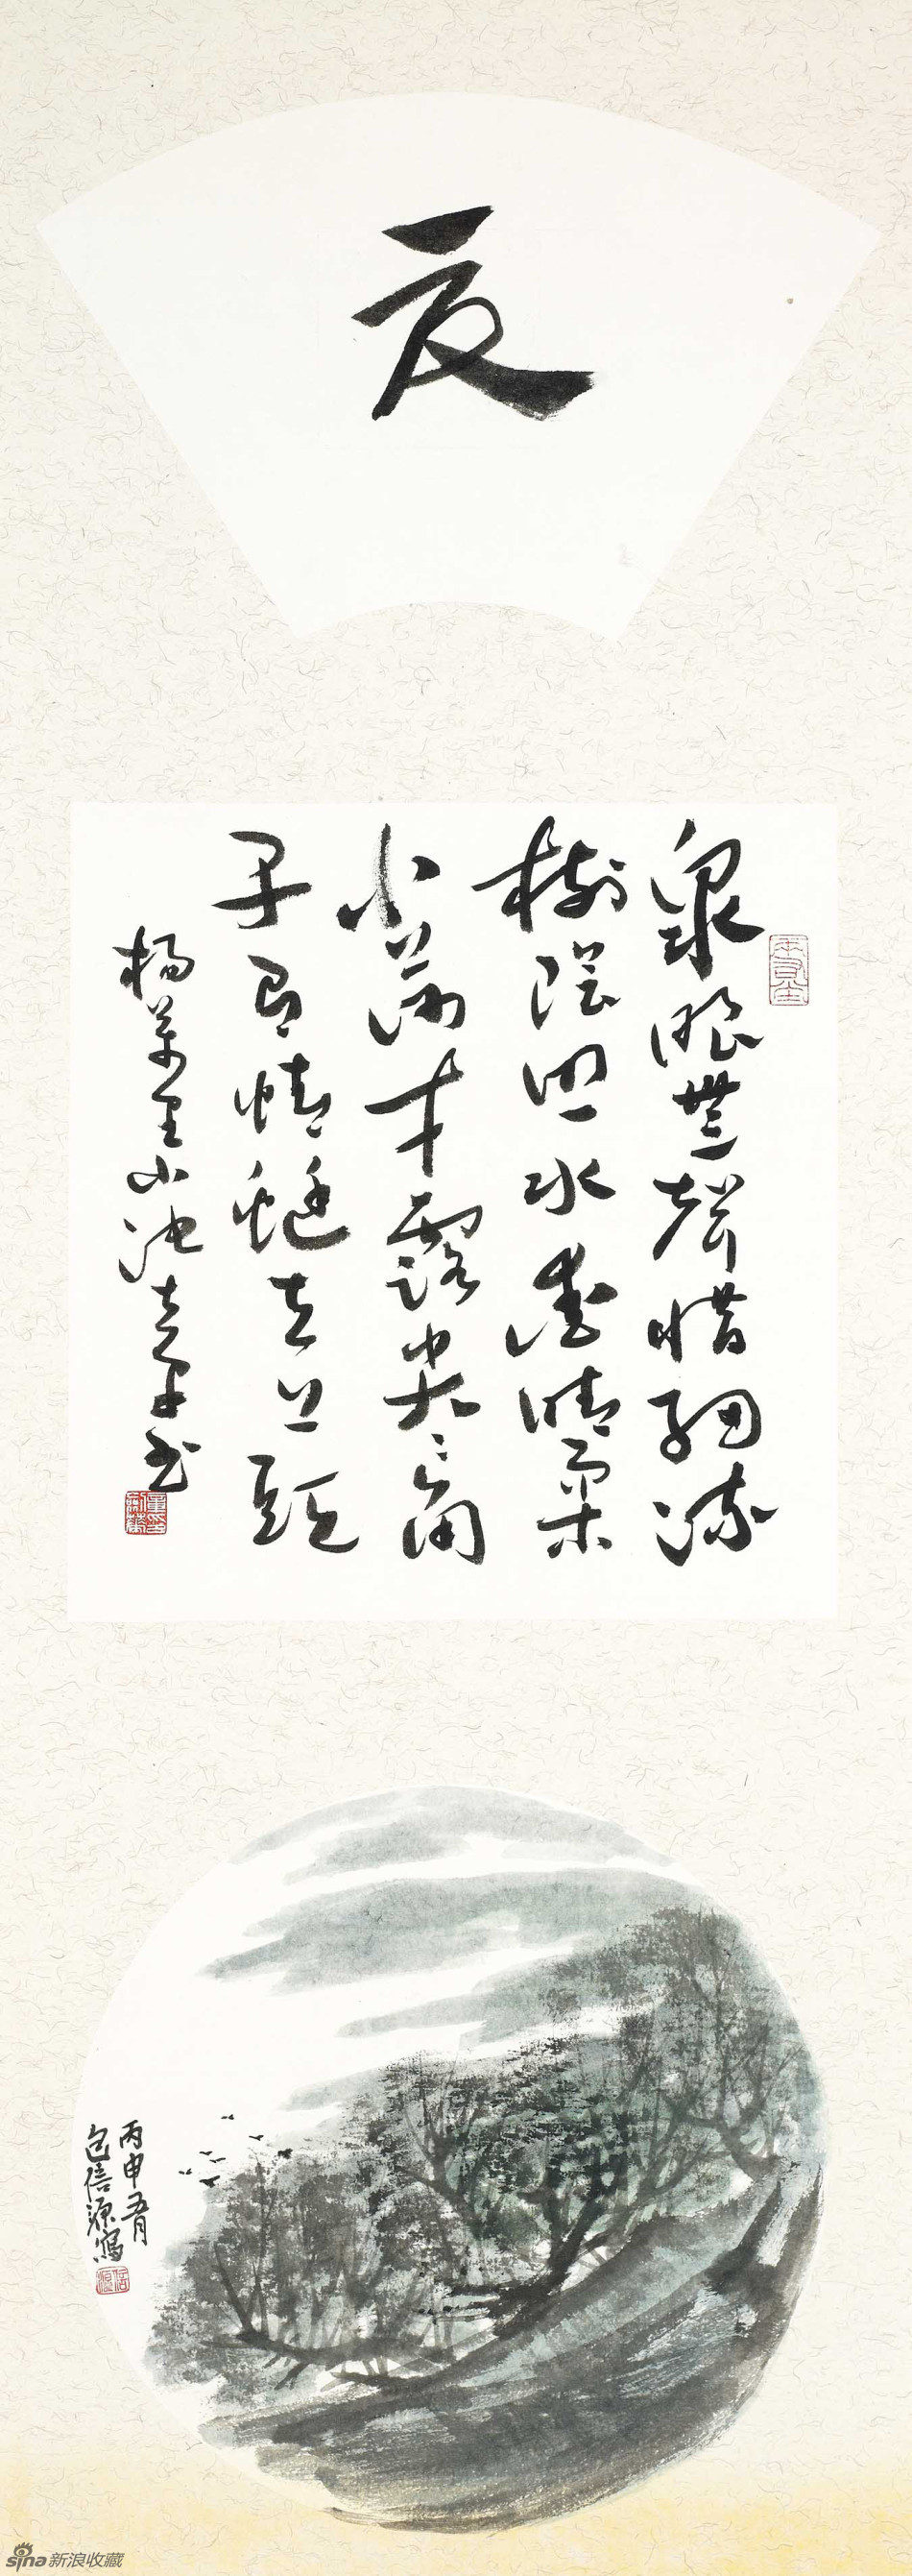 夏
泉眼無聲惜細流
樹陰照水愛晴柔
小荷才露尖々角
早有蜻蜓立上頭
楊萬里小池
丙申五月
包信源寫
信源
sina新浪收藏